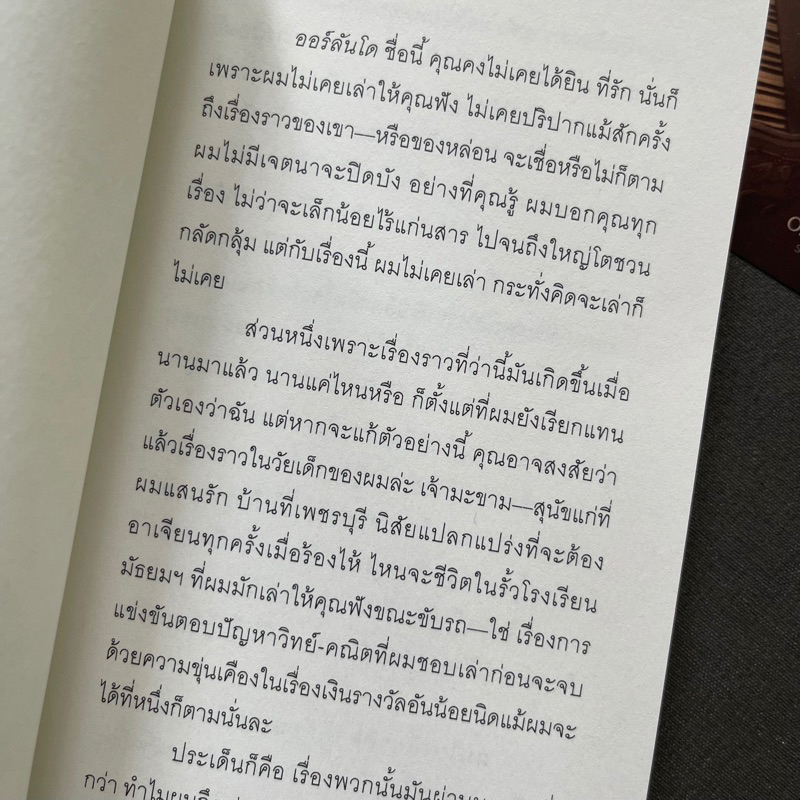 ออร์ลันโด ชื่อนี้ คุณคงไม่เคยได้ยิน ที่รัก นั่นก็
เพราะผมไม่เคยเล่าให้คุณฟัง ไม่เคยปริปากแม้สักครั้ง
ถึงเรื่องราวของเขา—หรือของหล่อน จะเชื่อหรือไม่ก็ตาม
ผมไม่มีเจตนาจะปิดบัง อย่างที่คุณรู้ ผมบอกคุณทุก
เรื่อง ไม่ว่าจะเล็กน้อยไร้แก่นสาร ไปจนถึงใหญ่โตชวน
กลัดกลุ้ม แต่กับเรื่องนี้ ผมไม่เคยเล่า กระทั่งคิดจะเล่าก็
ไม่เคย
ส่วนหนึ่งเพราะเรื่องราวที่ว่านี้มันเกิดขึ้นเมื่อ
นานมาแล้ว นานแค่ไหนหรือ ก็ตั้งแต่ที่ผมยังเรียกแทน
ตัวเองว่าฉัน แต่หากจะแก้ตัวอย่างนี้ คุณอาจสงสัยว่า
แล้วเรื่องราวในวัยเด็กของผมล่ะ เจ้ามะขาม—สุนัขแก่ที่
ผมแสนรัก บ้านที่เพชรบุรี นิสัยแปลกแปร่งที่จะต้อง
อาเจียนทุกครั้งเมื่อร้องไห้ ไหนจะชีวิตในรั้วโรงเรียน
มัธยมฯ ที่ผมมักเล่าให้คุณฟังขณะขับรถ—ใช่ เรื่องการ
แข่งขันตอบปัญหาวิทย์-คณิตที่ผมชอบเล่าก่อนจะจบ
ด้วยความขุ่นเคืองในเรื่องเงินรางวัลอันน้อยนิดแม้ผมจะ
ได้ที่หนึ่งก็ตามนั่นละ
ประเด็นก็คือ เรื่องพวกนั้นมันผ่าน
กว่า ทำไมผม